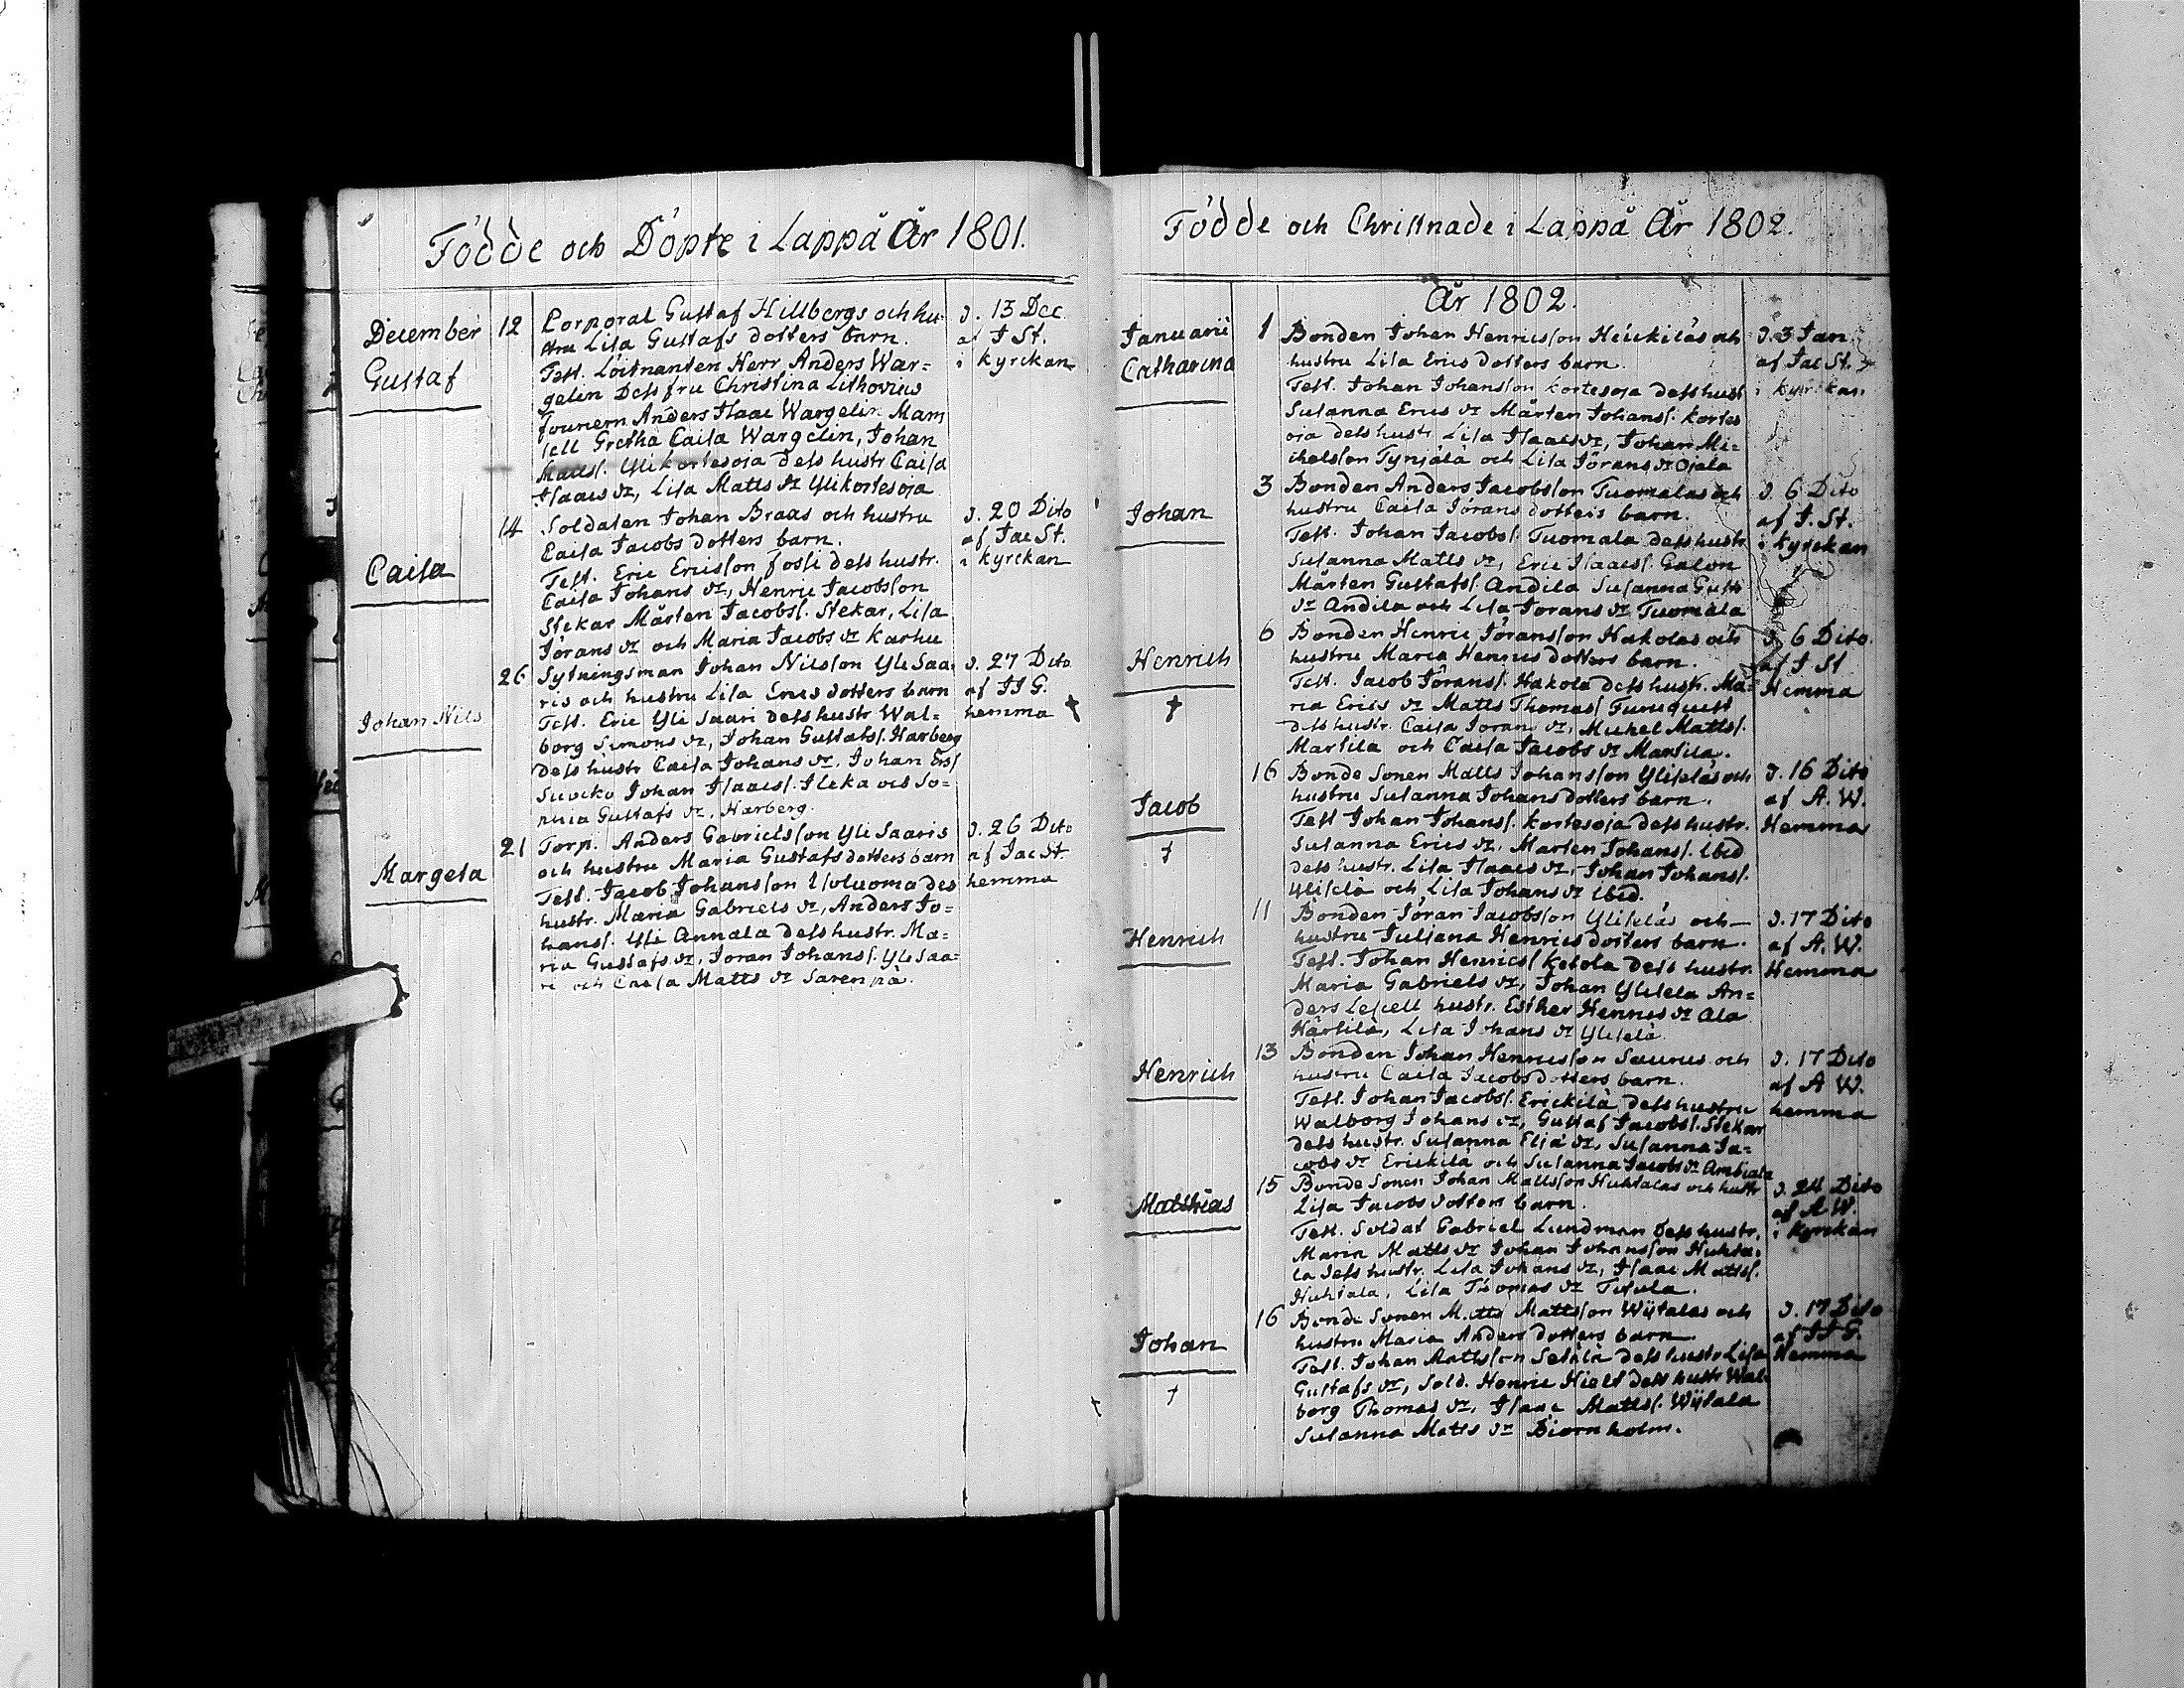 Födde och Döpte i Lappå År 1801.
December
Gustaf
12
Corporal Gustaf Hillbergs och hu-
stru Lisa Gustafs dotters barn.
Test. Löitnanten Herr Anders War=
gelin Dess fru Christina Lithovius
Fouriern Anders Isaac Wargelin Mam
sell Gretha Caisa Wargelin, Johan
Matts. Ylikortesoja dess hustr Caisa
Isaacs dr, Lisa Matts dr Ylikortesoja
d. 13 Dec.
af J St.
i kyrckan
Caisa
14
Soldaten Johan Braas och hustru
Caisa Jacobs dotters barn.
Test. Eric Ericsson fossi dess hustr.
Caisa Johans dr, Henric Jacobsson
Stekar Mårten Jacobs. Stekar, Lisa
Jörans dr och Maria Jacobs dr Karhu
d. 20 Dito
af Jac St.
i kyrckan
Johan Nils
26
Sytningsman Johan Nilsson Yli Saa-
ris och hustru Lisa Erics dotters barn
Test. Eric Yli Saari dess hustr Wal=
borg Simons dr, Johan Gustafs. Harberg
dess hustr Caisa Johans dr, Johan Ers
Johan Isaacs. och So=
phia Gustafs dr, Harberg.
d. 27 Dito
af JJ G.
hemma †
Margeta
21
Torp. Anders Gabrielsson Yli Saaris
och hustru Maria Gustafs dotters barn
Test. Jacob Johansson Isoluoma des
hustr. Maria Gabriels dr, Anders Jo=
hans. Yli Annala dess hustr. Ma=
ria Gustafs dr, Jöran Johans. Yli Saa=
ri och Caisa Matts dr Sarenpä.
d. 26 Dito
af Jac St.
hemma
Födde och Christnade i Lappå År 1802.
År 1802.
Januarii
Catharina
1
Bonden Johan Henricsson Heickiläs och
hustru Lisa Erics dotters barn.
Test. Johan Johansson Kortesoja dess hust
Susanna Erics dr Mårten Johans. Kortes
oja dess hustr Lisa Isaacs dr, Johan Mi=
chelsson Tynjälä och Lisa Jörans dr Ojala
d. 3 Jan.
af Jac St.
i kyrckan
Johan
3
Bonden Anders Jacobsson Tuomalas och
hustru Caisa Jörans dotters barn.
Test. Johan Jacobs. Tuomala dess hustr
Susanna Matts dr, Eric Isaacs. Galon
Mårten Gustafs. Andila Susanna Gust
dr Andila och Lisa Jörans dr Tuomala
d. 6 Dito
af J. St.
i kyrckan
Henrich
†
6
Bonden Henric Jöransson Hakolas och
hustru Maria Henrics dotters barn.
Test. Jacob Jörans. Hakola dess hustr. Ma=
ria Erics dr Matts Thomas Furuquist
dess hustr. Caisa Jörans dr, Michel Matts.
Marsila och Caisa Jacobs dr Marsila.
d. 6 Dito.
af J St
Hemma
Jacob
†
16
Bonde Sonen Matts Johansson Yliseläs och
hustru Susanna Johans dotters barn.
Test Johan Johans. Kortesoja dess hustr.
Susanna Erics dr, Mårten Johans. Ibid
dess hustr. Lisa Isaacs dr, Johan Johans.
Yliselä och Lisa Johans dr Ibid.
d. 16 Dito
af A. W.
Hemma
Henrich
11
Bonden Jöran Jacobsson Yliseläs och
hustru Juliana Henrics dotters barn.
Test. Johan Henrics Ketola dess hustr.
Maria Gabriels dr, Johan Yliselä An=
ders hustr. Esther Henrics dr Ala
Härsilä, Lisa Johans dr Yliselä.
d. 17 Dito
af A. W.
Hemma
Henrich
13
Bonden Johan Henricsson Saurus och
hustru Caisa Jacobs dotters barn.
Test. Johan Jacobs. Erickilä, dess hustru
Walborg Johans dr, Gustaf Jacobs. Stekar
dess hustr. Susanna Eliä dr, Susanna Ja=
cobs dr Erickilä och Susanna Jacobs dr
d. 17 Dito
af A W.
hemma
Matthias
15
Bonde Sonen Johan Mattsson Huhtalas och hustr
Lisa Jacobs dotters barn.
Test. Soldat Gabriel Lundman dess hustr.
Maria Matts dr Johan Johansson Huhta-
la dess hustr. Lisa Johans dr, Isaac Matts.
Huhtala, Lisa Thomas dr
d. 24 Dito
af A W.
i kyrckan
Johan
†
16
Bonde Sonen Matts Mattsson Wijtalas och
hustru Maria Anders dotters barn.
Test. Johan Mattsson Setälä dess hustr Lisa
Gustafs dr, Sold. Henric Hielt dess hustr Wal-
borg Thomas dr, Isaac Matts. Wijtala
Susanna Matts dr Biörnholm.
d. 17 Dito
af JJ G.
Hemma